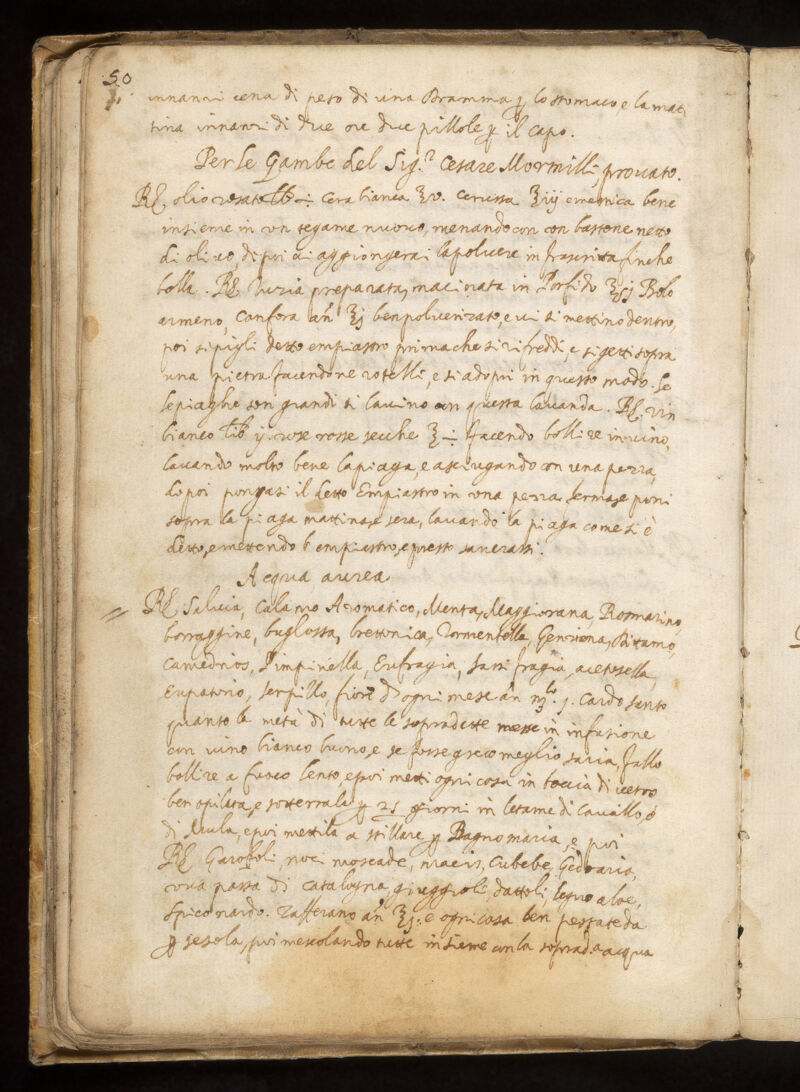 50
innanzi cena di peso di una Dramma ꝑ lo stomaco, e la mat
tina innanzi dì due ore due pillole ꝑ il capo.
Per le Gambe del Sig.r Cesare Mormilli, prouato.
olio rosato lb cera bianca ℥v. cerussa ℥iij e mesnica bene
insieme in un tegame nuouo, menando con un bastone netto
di oliuo, di poi ui aggiongerai la poluere infrascritta finche
bolla. Tuzia preparata, macinata in Porfido Bolo
armeno, Canfora an ℥j ben poluerizato, e ui si mettino dentro,
poi si pigli detto empiastro prima che si rifreddi, e si getti sopra
una pietra facendone rotelli, e si adopri in questo modo. Se
le piaghe son grandi si lauino con questa lauanda. Vin
bianco lb ij. rose rosse secche ℥ facendo bollire in uino,
lauando molto bene la piaga, e asciugando con una pezza,
dopoi pongasi il detto Empiastro in una pezza, e poni
sopra la piaga mattina, e sera, lauando la piaga come si è
detto, e mettendo l'empiastro, e presto sanerassi.
Acqua aurea
Saluia, Calamo Aromatico, Menta, Maggiorana, Rosmarino,
borraggine, buglossa, brettonica, Tormentella, Genziona, Ditamo,
Camedrios, Pimpinella, Eufragia, sassifragia, acetosella,
Eupatorio, serpillo, fiore d'ogni mese an j. Cardo santo
quanto le metà di tutte le sopradette messe in infusione
con uino bianco buono, e se fosse greco meglio saria, fallo
bollire a fuoco lento, e poi metti ogni cosa in boccia di uetro
ben opilata, e sotterrala ꝑ 25 giorni in letame di Cauallo, ò
di Mula, e poi mettila a stillare ꝑ Bagno maria, e poi
Garofoli, noci moscade, macis, Cubebe, Gedoaria,
uua passa di Catalogna, giuggioli, dattoli, legno aloe,
Spiconardo. Zafferano an ℥j. e ogni cosa ben pestate da
ꝑ se sola, poi mescolando tutte insieme con la soprad.a acqua